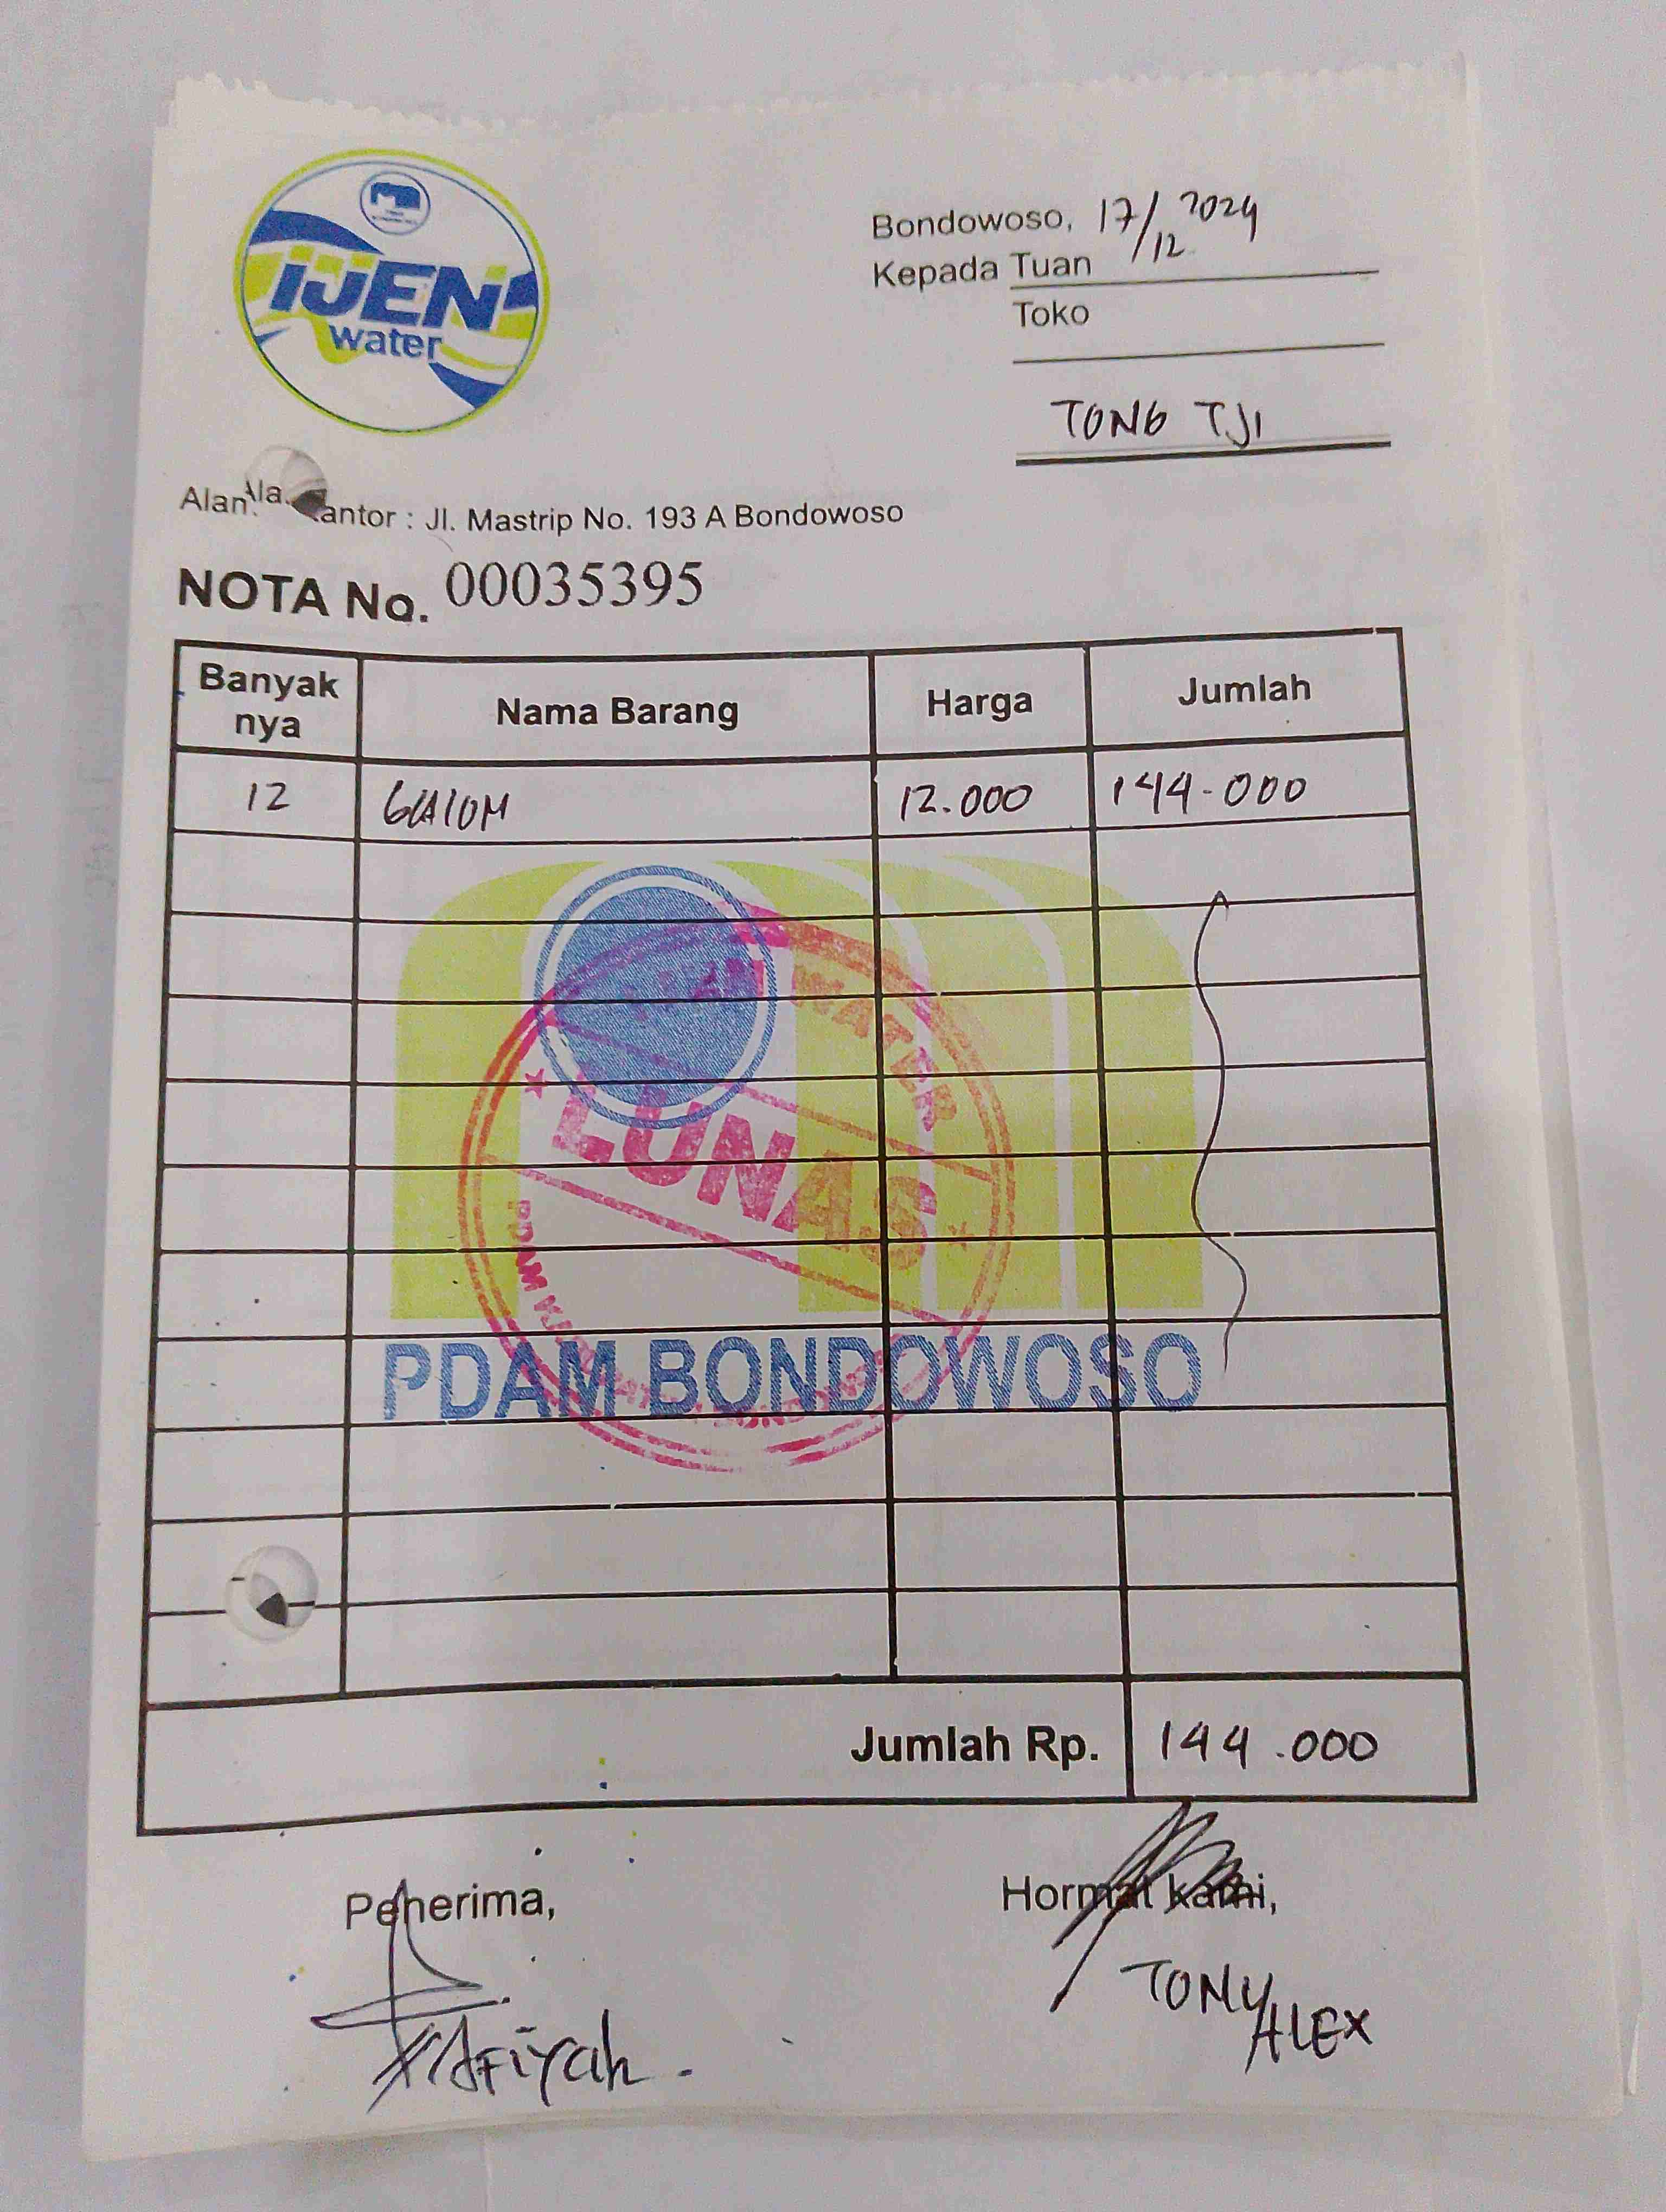 IJEN
water
Bondowoso, 17/12 2024
Kepada Tuan
Toko
TONG TJI
Kantor : Jl. Mastrip No. 193 A Bondowoso
NOTA No. 00035395
Banyak nya Nama Barang Harga Jumlah
12 GALON 12.000 144.000
WATER
LUNAS
PDAM
PDAM BONDOWOSO
Jumlah Rp. 144.000
Penerima, Hormat kami,
TONY/ALEX